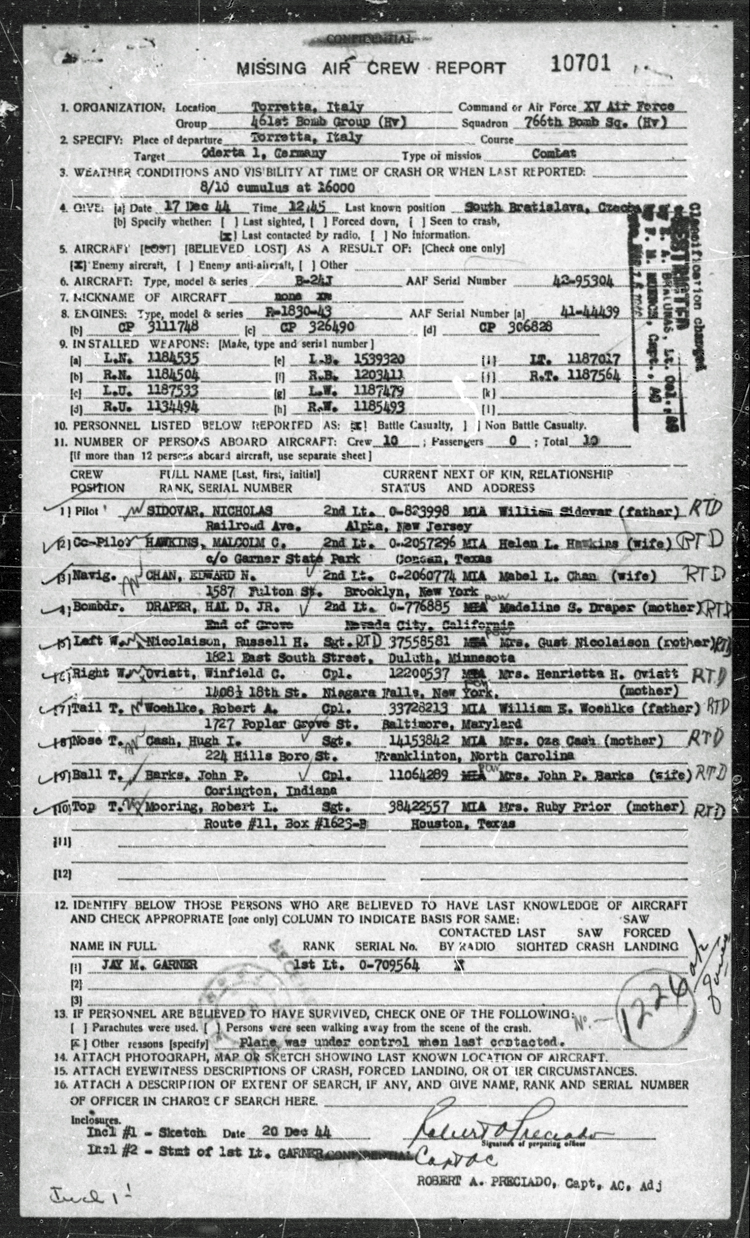 CONFIDENTIAL
MISSING AIR CREW REPORT 10701
1. ORGANIZATION: Location Torretta, Italy Command or Air Force XV Air Force
Group 461st Bomb Group (Hv) Squadron 766th Bomb Sq. (Hv)
2. SPECIFY: Place of departure Torretta, Italy Course
Target Oderta 1, Germany Type of mission Combat
3. WEATHER CONDITIONS AND VISIBILITY AT TIME OF CRASH OR WHEN LAST REPORTED:
8/10 cumulus at 16000
4. GIVE: [a] Date 17 Dec 44 Time 12,45 Last known position South Bratislava, Czech
[b] Specify whether: [ ] Last sighted, [ ] Forced down, [ ] Seen to crash,
[x] Last contacted by radio, [ ] No information.
5. AIRCRAFT [LOST] [BELIEVED LOST] AS A RESULT OF: [Check one only]
[X] Enemy aircraft, [ ] Enemy anti-aircraft, [ ] Other
6. AIRCRAFT: Type, model & series B-24J AAF Serial Number 42-95304
7. NICKNAME OF AIRCRAFT none
8. ENGINES: Type, model & series R-1830-43 AAF Serial Number [a] 41-44439
[b] CP 3111748 [c] CP 326490 [d] CP 306828
9. INSTALLED WEAPONS: [Make, type and serial number]
[a] L.N. 1184535 [e] L.B. 1539320 [i] LT. 1187017
[b] R.N. 1184504 [f] R.B. 1203411 [j] R.T. 1187564
[c] L.U. 1187533 [g] L.W. 1187479 [k]
[d] R.U. 1134494 [h] R.W. 1185493 [l]
10. PERSONNEL LISTED BELOW REPORTED AS: [x] Battle Casualty, [ ] Non Battle Casualty.
11. NUMBER OF PERSONS ABOARD AIRCRAFT: Crew 10 ; Passengers 0 ; Total 10
[If more than 12 persons aboard aircraft, use separate sheet]
CREW FULL NAME [Last, first, initial] CURRENT NEXT OF KIN, RELATIONSHIP
POSITION RANK, SERIAL NUMBER STATUS AND ADDRESS
[1] Pilot SIDOVAR, NICHOLAS 2nd Lt. 0-823998 MIA William Sidovar (father) RTD
Railroad Ave. Alpha, New Jersey
[2] Co-Pilot HAWKINS, MALCOLM C. 2nd Lt. 0-2057296 MIA Helen L. Hawkins (wife) RTD
c/o Garner State Park Concan, Texas
[3] Navig. CHAN, EDWARD N. 2nd Lt. 0-2060774 MIA Mabel L. Chan (wife) RTD
1587 Fulton St. Brooklyn, New York
[4] Bombdr. DRAPER, HAL D. JR. 2nd Lt. 0-776885 MIA POW Madeline S. Draper (mother) RTD
End of Grove Nevada City, California
[5] Left W. Nicolaison, Russell H. Sgt. RTD 37558581 MIA POW Mrs. Gust Nicolaison (mother) RTD
1821 East South Street, Duluth, Minnesota
[6] Right W. Oviatt, Winfield C. Cpl. 12200537 MIA Mrs. Henrietta H. Oviatt RTD
1408½ 18th St. Niagara Falls, New York. (mother)
[7] Tail T. Woehlke, Robert A. Cpl. 33728213 MIA POW William E. Woehlke (father) RTD
1727 Poplar Grove St. Baltimore, Maryland
[8] Nose T. Cash, Hugh I. Sgt. 14153842 MIA Mrs. Oza Cash (mother) RTD
224 Hills Boro St. Franklinton, North Carolina
[9] Ball T. Barks, John P. Cpl. 11064289 MIA POW Mrs. John P. Barks (wife) RTD
Corington, Indiana
[10] Top T. Mooring, Robert L. Sgt. 38422557 MIA Mrs. Ruby Prior (mother) RTD
Route #11, Box #1623-B Houston, Texas
[11]
[12]
12. IDENTIFY BELOW THOSE PERSONS WHO ARE BELIEVED TO HAVE LAST KNOWLEDGE OF AIRCRAFT
AND CHECK APPROPRIATE [one only] COLUMN TO INDICATE BASIS FOR SAME: SAW
CONTACTED LAST SAW FORCED
NAME IN FULL RANK SERIAL No. BY RADIO SIGHTED CRASH LANDING
[1] JAY M. GARNER 1st Lt. 0-709564 X
[2]
[3]
13. IF PERSONNEL ARE BELIEVED TO HAVE SURVIVED, CHECK ONE OF THE FOLLOWING:
[ ] Parachutes were used. [ ] Persons were seen walking away from the scene of the crash.
[x] Other reasons [specify] Plane was under control when last contacted.
No. - 1226
14. ATTACH PHOTOGRAPH, MAP OR SKETCH SHOWING LAST KNOWN LOCATION OF AIRCRAFT.
15. ATTACH EYEWITNESS DESCRIPTIONS OF CRASH, FORCED LANDING, OR OTHER CIRCUMSTANCES.
16. ATTACH A DESCRIPTION OF EXTENT OF SEARCH, IF ANY, AND GIVE NAME, RANK AND SERIAL NUMBER
OF OFFICER IN CHARGE OF SEARCH HERE.
Inclosures.
Incl #1 - Sketch Date 20 Dec 44 Robert A Preciado
Signature of preparing officer
Incl #2 - Stmt of 1st Lt. GARNER CONFIDENTIAL Capt AC
ROBERT A. PRECIADO, Capt, AC, Adj
Incl 1
Classification changed
to RESTRICTED
by E. A. BRADUNAS, Lt. Col., AC
by F. M. Capt., AC